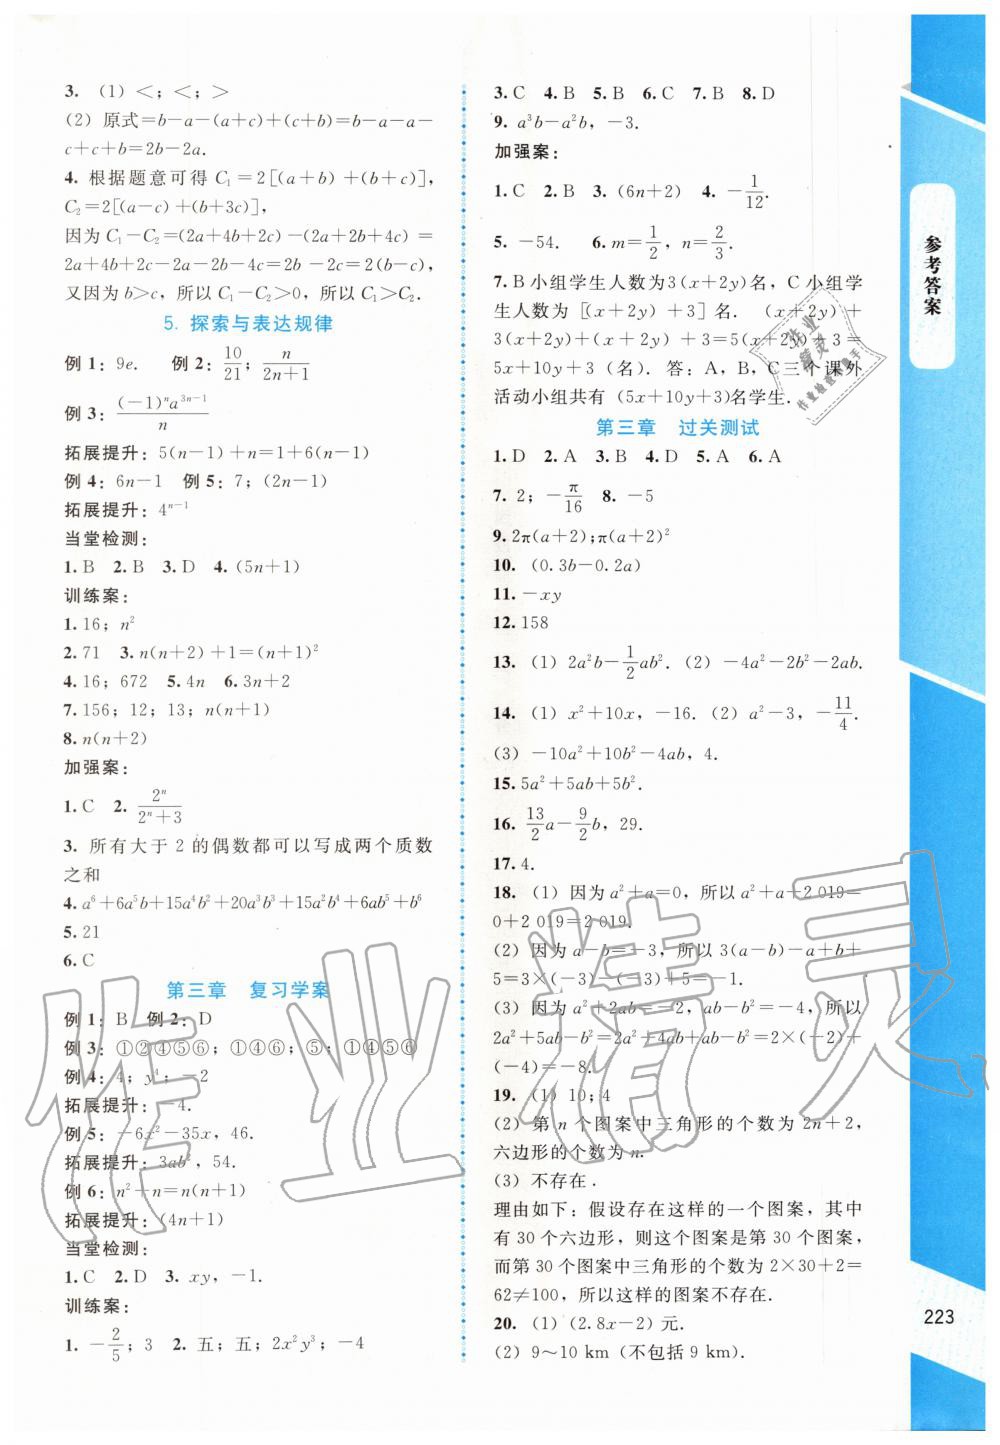 3. (1) <; <; >
(2) 原式=b-a-(a+c)+(c+b)=b-a-a-
c+c+b=2b-2a.
4. 根据题意可得 C₁=2[(a+b)+(b+c)],
C₂=2[(a-c)+(b+3c)],
因为 C₁-C₂=(2a+4b+2c)-(2a+2b+4c)=
2a+4b+2c-2a-2b-4c=2b-2c=2(b-c),
又因为 b>c, 所以 C₁-C₂>0, 所以 C₁>C₂.
5. 探索与表达规律
例 1: 9e. 例 2: 10/21; n/(2n+1)
例 3: (-1)ⁿa³ⁿ⁻¹/n
拓展提升: 5(n-1)+n=1+6(n-1)
例 4: 6n-1 例 5: 7; (2n-1)
拓展提升: 4ⁿ⁻¹
当堂检测:
1. B 2. B 3. D 4. (5n+1)
训练案:
1. 16; n²
2. 71 3. n(n+2)+1=(n+1)²
4. 16; 672 5. 4n 6. 3n+2
7. 156; 12; 13; n(n+1)
8. n(n+2)
加强案:
1. C 2. 2ⁿ/(2ⁿ+3)
3. 所有大于 2 的偶数都可以写成两个质数
之和
4. a⁶+6a⁵b+15a⁴b²+20a³b³+15a²b⁴+6ab⁵+b⁶
5. 21
6. C
第三章 复习学案
例 1: B 例 2: D
例 3: ①②④⑤⑥; ①④⑥; ⑤; ①④⑤⑥
例 4: 4; y⁴; -2
拓展提升: -4.
例 5: -6x²-35x, 46.
拓展提升: 3ab², 54.
例 6: n²+n=n(n+1)
拓展提升: (4n+1)
当堂检测:
1. C 2. D 3. xy, -1.
训练案:
1. -2/5; 3 2. 五; 五; 2x²y³; -4
3. C 4. B 5. B 6. C 7. B 8. D
9. a³b-a²b, -3.
加强案:
1. C 2. B 3. (6n+2) 4. -1/12.
5. -54. 6. m=1/2, n=2/3.
7. B 小组学生人数为 3(x+2y) 名, C 小组学
生人数为 [(x+2y)+3] 名. (x+2y)+
3(x+2y)+(x+2y)+3=5(x+2y)+3=
5x+10y+3 (名). 答: A, B, C 三个课外
活动小组共有 (5x+10y+3) 名学生.
第三章 过关测试
1. D 2. A 3. B 4. D 5. A 6. A
7. 2; -π/16 8. -5
9. 2π(a+2); π(a+2)²
10. (0.3b-0.2a)
11. -xy
12. 158
13. (1) 2a²b-1/2ab². (2) -4a²-2b²-2ab.
14. (1) x²+10x, -16. (2) a²-3, -11/4.
(3) -10a²+10b²-4ab, 4.
15. 5a²+5ab+5b².
16. 13/2a-9/2b, 29.
17. 4.
18. (1) 因为 a²+a=0, 所以 a²+a+2 019=
0+2 019=2 019.
(2) 因为 a-b=-3, 所以 3(a-b)-a+b+
5=3×(-3)-(-3)+5=-1.
(3) 因为 a²+2ab=-2, ab-b²=-4, 所以
2a²+5ab-b²=2a²+4ab+ab-b²=2×(-2)+
(-4)=-8.
19. (1) 10; 4
(2) 第 n 个图案中三角形的个数为 2n+2,
六边形的个数为 n.
(3) 不存在.
理由如下: 假设存在这样的一个图案, 其中
有 30 个六边形, 则这个图案是第 30 个图案,
而第 30 个图案中三角形的个数为 2×30+2=
62≠100, 所以这样的图案不存在.
20. (1) (2.8x-2) 元.
(2) 9~10 km (不包括 9 km).
参考答案
223
作业精灵
作业
精灵